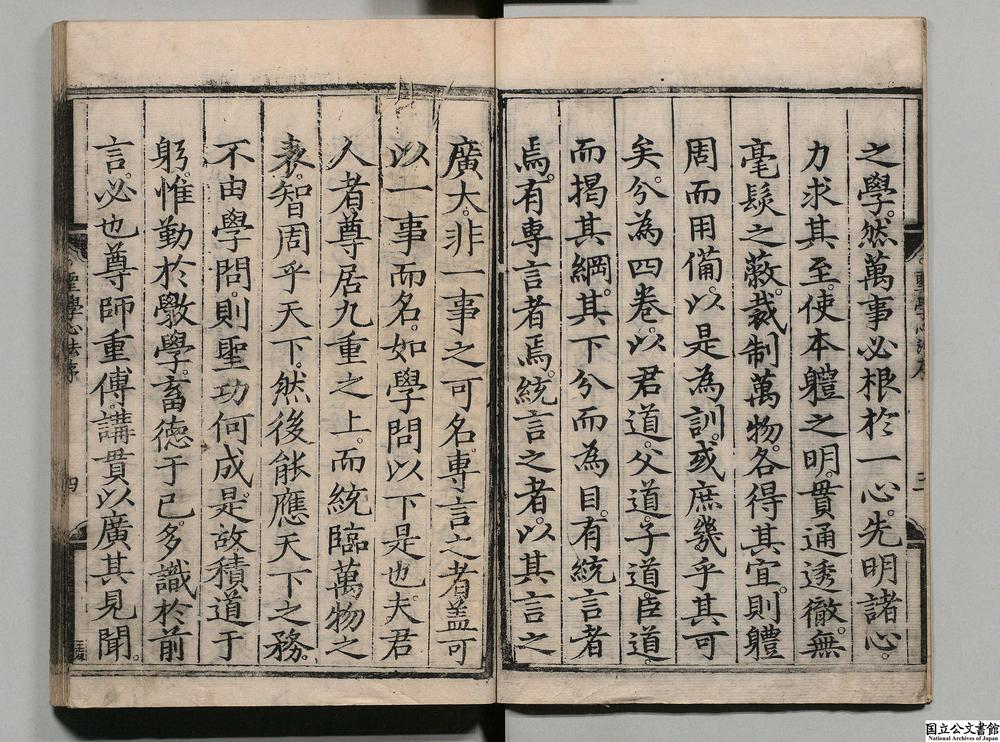 之學。然萬事必根於一心。先明諸心。
力求其至。使本軆之明。貫通透徹。無
毫髮之蔽。裁制萬物。各得其宜。則軆
周而用備。以是為訓。或庶幾乎其可
矣。分為四卷。以君道。父道。子道。臣道。
而揭其綱。其下分而為目。有統言者
焉。有專言者焉。統言之者。以其言之
廣大。非一事之可名。專言之者。盖可
以一事而名。如學問以下是也。夫君
人者尊居九重之上。而統臨萬物之
表。智周乎天下。然後能應天下之務。
不由學問。則聖功何成。是故積道于
躬。惟勤於斆學。畜德于己。多識於前
言。必也尊師重傅。講貫以廣其見聞。
聖學心法序
三
聖學心法序
四
国立公文書館
National Archives of Japan